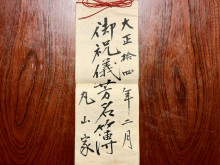 大正拾四年二月
御祝儀芳名簿
丸山家